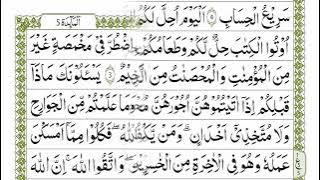 سَرِيْعُ الْحِسَابِ اَلْيَوْمَ اُحِلَّ لَكُمُ
اُوْتُوا الْكِتٰبَ حِلٌّ لَّكُمْ وَطَعَامُكُمْ اضْطُرَّ فِيْ مَخْمَصَةٍ غَيْرَ
مِنَ الْمُؤْمِنٰتِ وَالْمُحْصَنٰتُ مِنَ يَسْـَٔلُوْنَكَ مَاذَا
قَبْلِكُمْ اِذَآ اٰتَيْتُمُوْهُنَّ اُجُوْرَهُنَّ وَمَا عَلَّمْتُمْ مِّنَ الْجَوَارِحِ
وَلَا مُتَّخِذِيْٓ اَخْدَانٍ وَمَنْ اللّٰهُ فَكُلُوْا مِمَّآ اَمْسَكْنَ
عَمَلُهٗ وَهُوَ فِي الْاٰخِرَةِ مِنَ الْخٰسِرِيْنَ وَاتَّقُوا اللّٰهَ اِنَّ اللّٰهَ